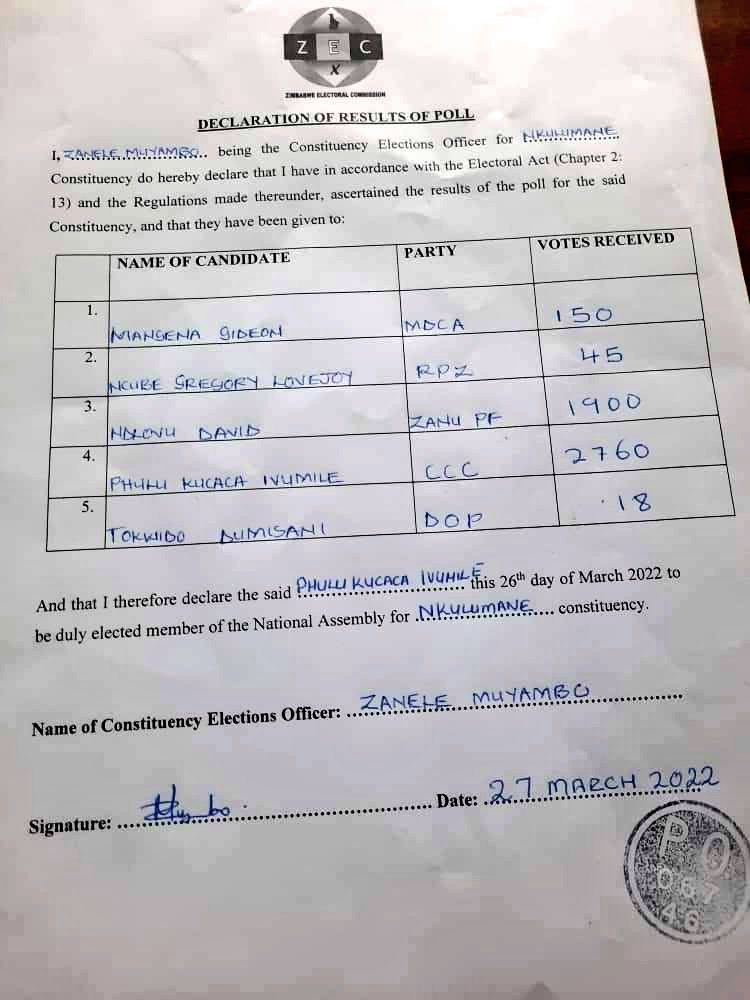 Z E C
X
ZIMBABWE ELECTORAL COMMISSION
DECLARATION OF RESULTS OF POLL
I, ZANELE MUYAMBO.. being the Constituency Elections Officer for NKULUMANE
Constituency do hereby declare that I have in accordance with the Electoral Act (Chapter 2:
13) and the Regulations made thereunder, ascertained the results of the poll for the said
Constituency, and that they have been given to:
NAME OF CANDIDATE PARTY VOTES RECEIVED
1. MANGENA GIDEON MDCA 150
2. NCUBE GREGORY LOVEJOY RPZ 45
3. NDLOVU DAVID ZANU PF 1900
4. PHULU KUCACA IVUMILE CCC 2760
5. TOKWIDO DUMISANI DOP 18
And that I therefore declare the said PHULU KUCACA IVUMILE this 26th day of March 2022 to
be duly elected member of the National Assembly for .NKULUMANE.... constituency.
Name of Constituency Elections Officer: ZANELE MUYAMBO
Signature: Date: 27 MARCH 2022
PO
067
46